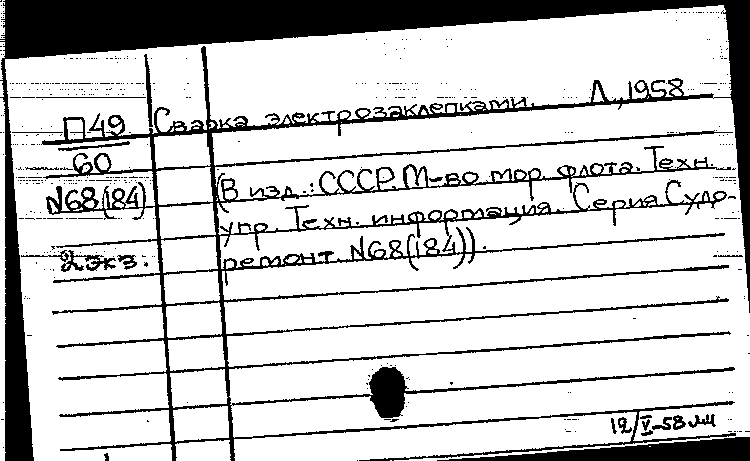 П49 Сварка электрозаклепками. Л, 1958
60
N68(184) (В изд.: СССР. М-во мор. флота. Техн.
упр. Техн. информация. Серия Судо-
2 экз. ремонт. N68(184)).
12/V-58